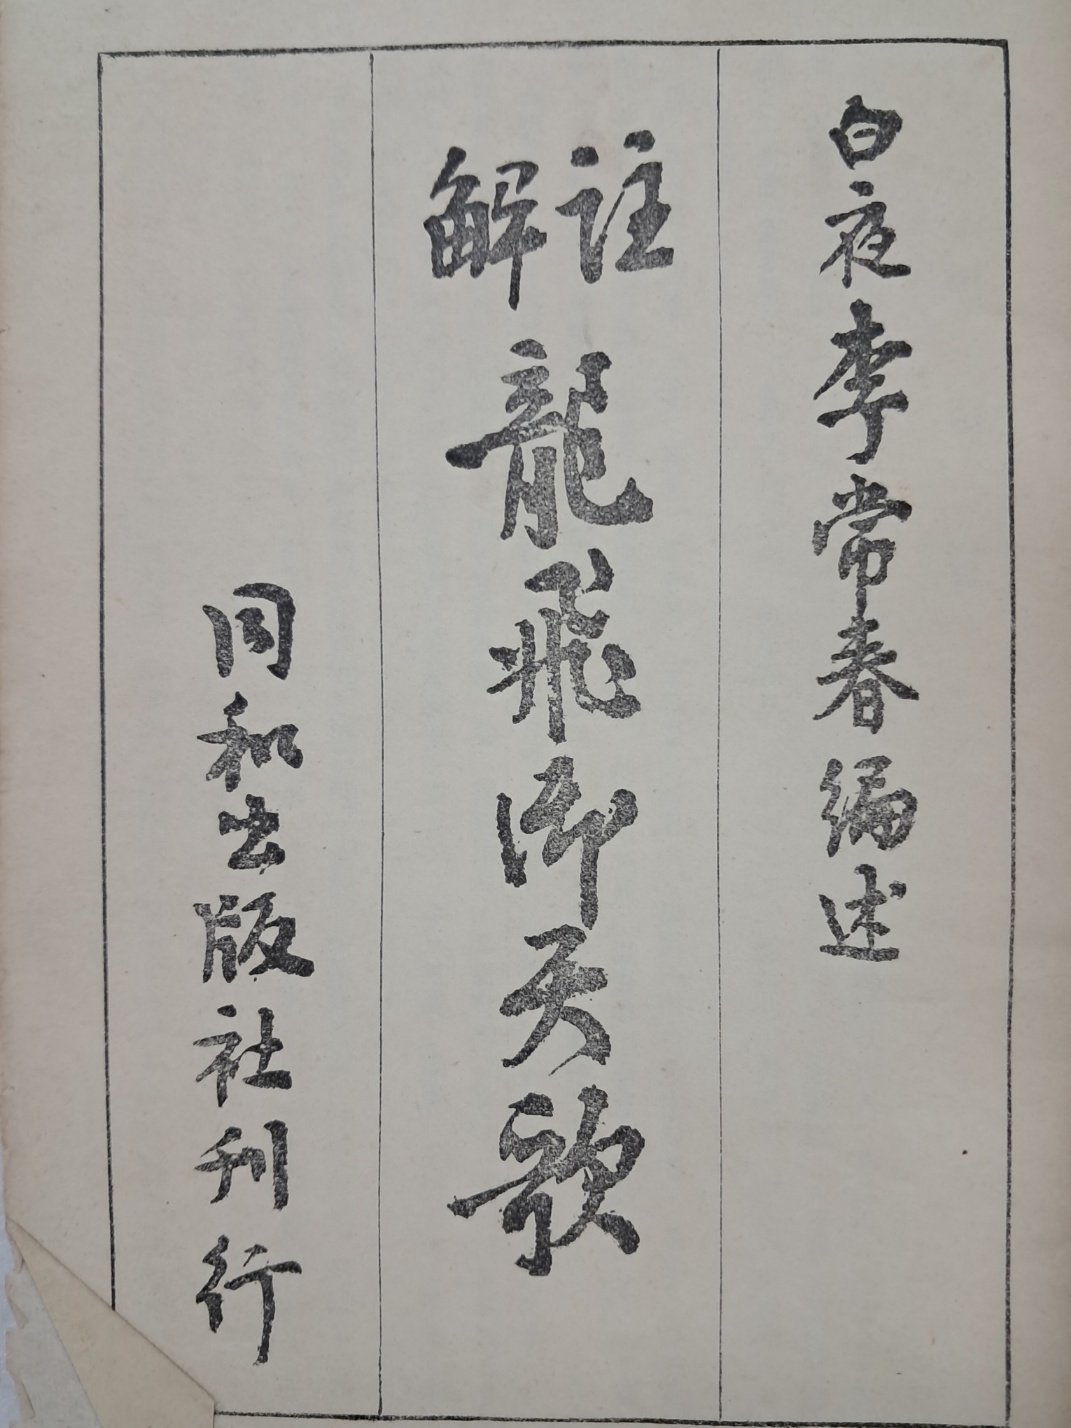 白夜 李常春 編述
註解 龍飛御天歌
同和出版社刊行